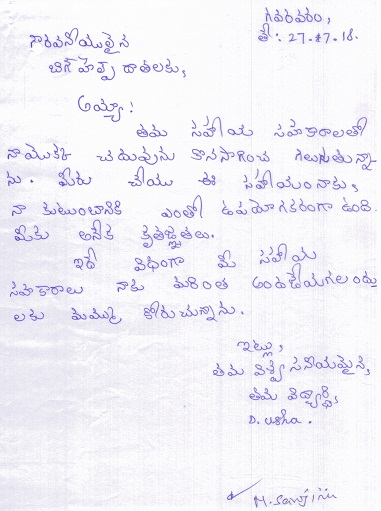 గవరవరం,
తే: 27.07.18.
గౌరవనీయులైన
బిగ్ హెల్ప్ దాతలకు,
అయ్యా!
తమ సహాయ సహకారాలతో
నాయొక్క చదువును కొనసాగించ గలుగుతున్నా
ను. మీరు చేయు ఈ సహాయం నాకు,
నా కుటుంబానికి ఎంతో ఉపయోగకరంగా ఉంది.
మీకు అనేక కృతజ్ఞతలు.
ఇదే విధంగా మీ సహాయ
సహకారాలు నాకు మరింత అందజేయగలందు
లకు మిమ్ము కోరుచున్నాను.
ఇట్లు,
తమ విశ్వసనీయమైన,
తమ విద్యార్థి,
D. Usha.
M.